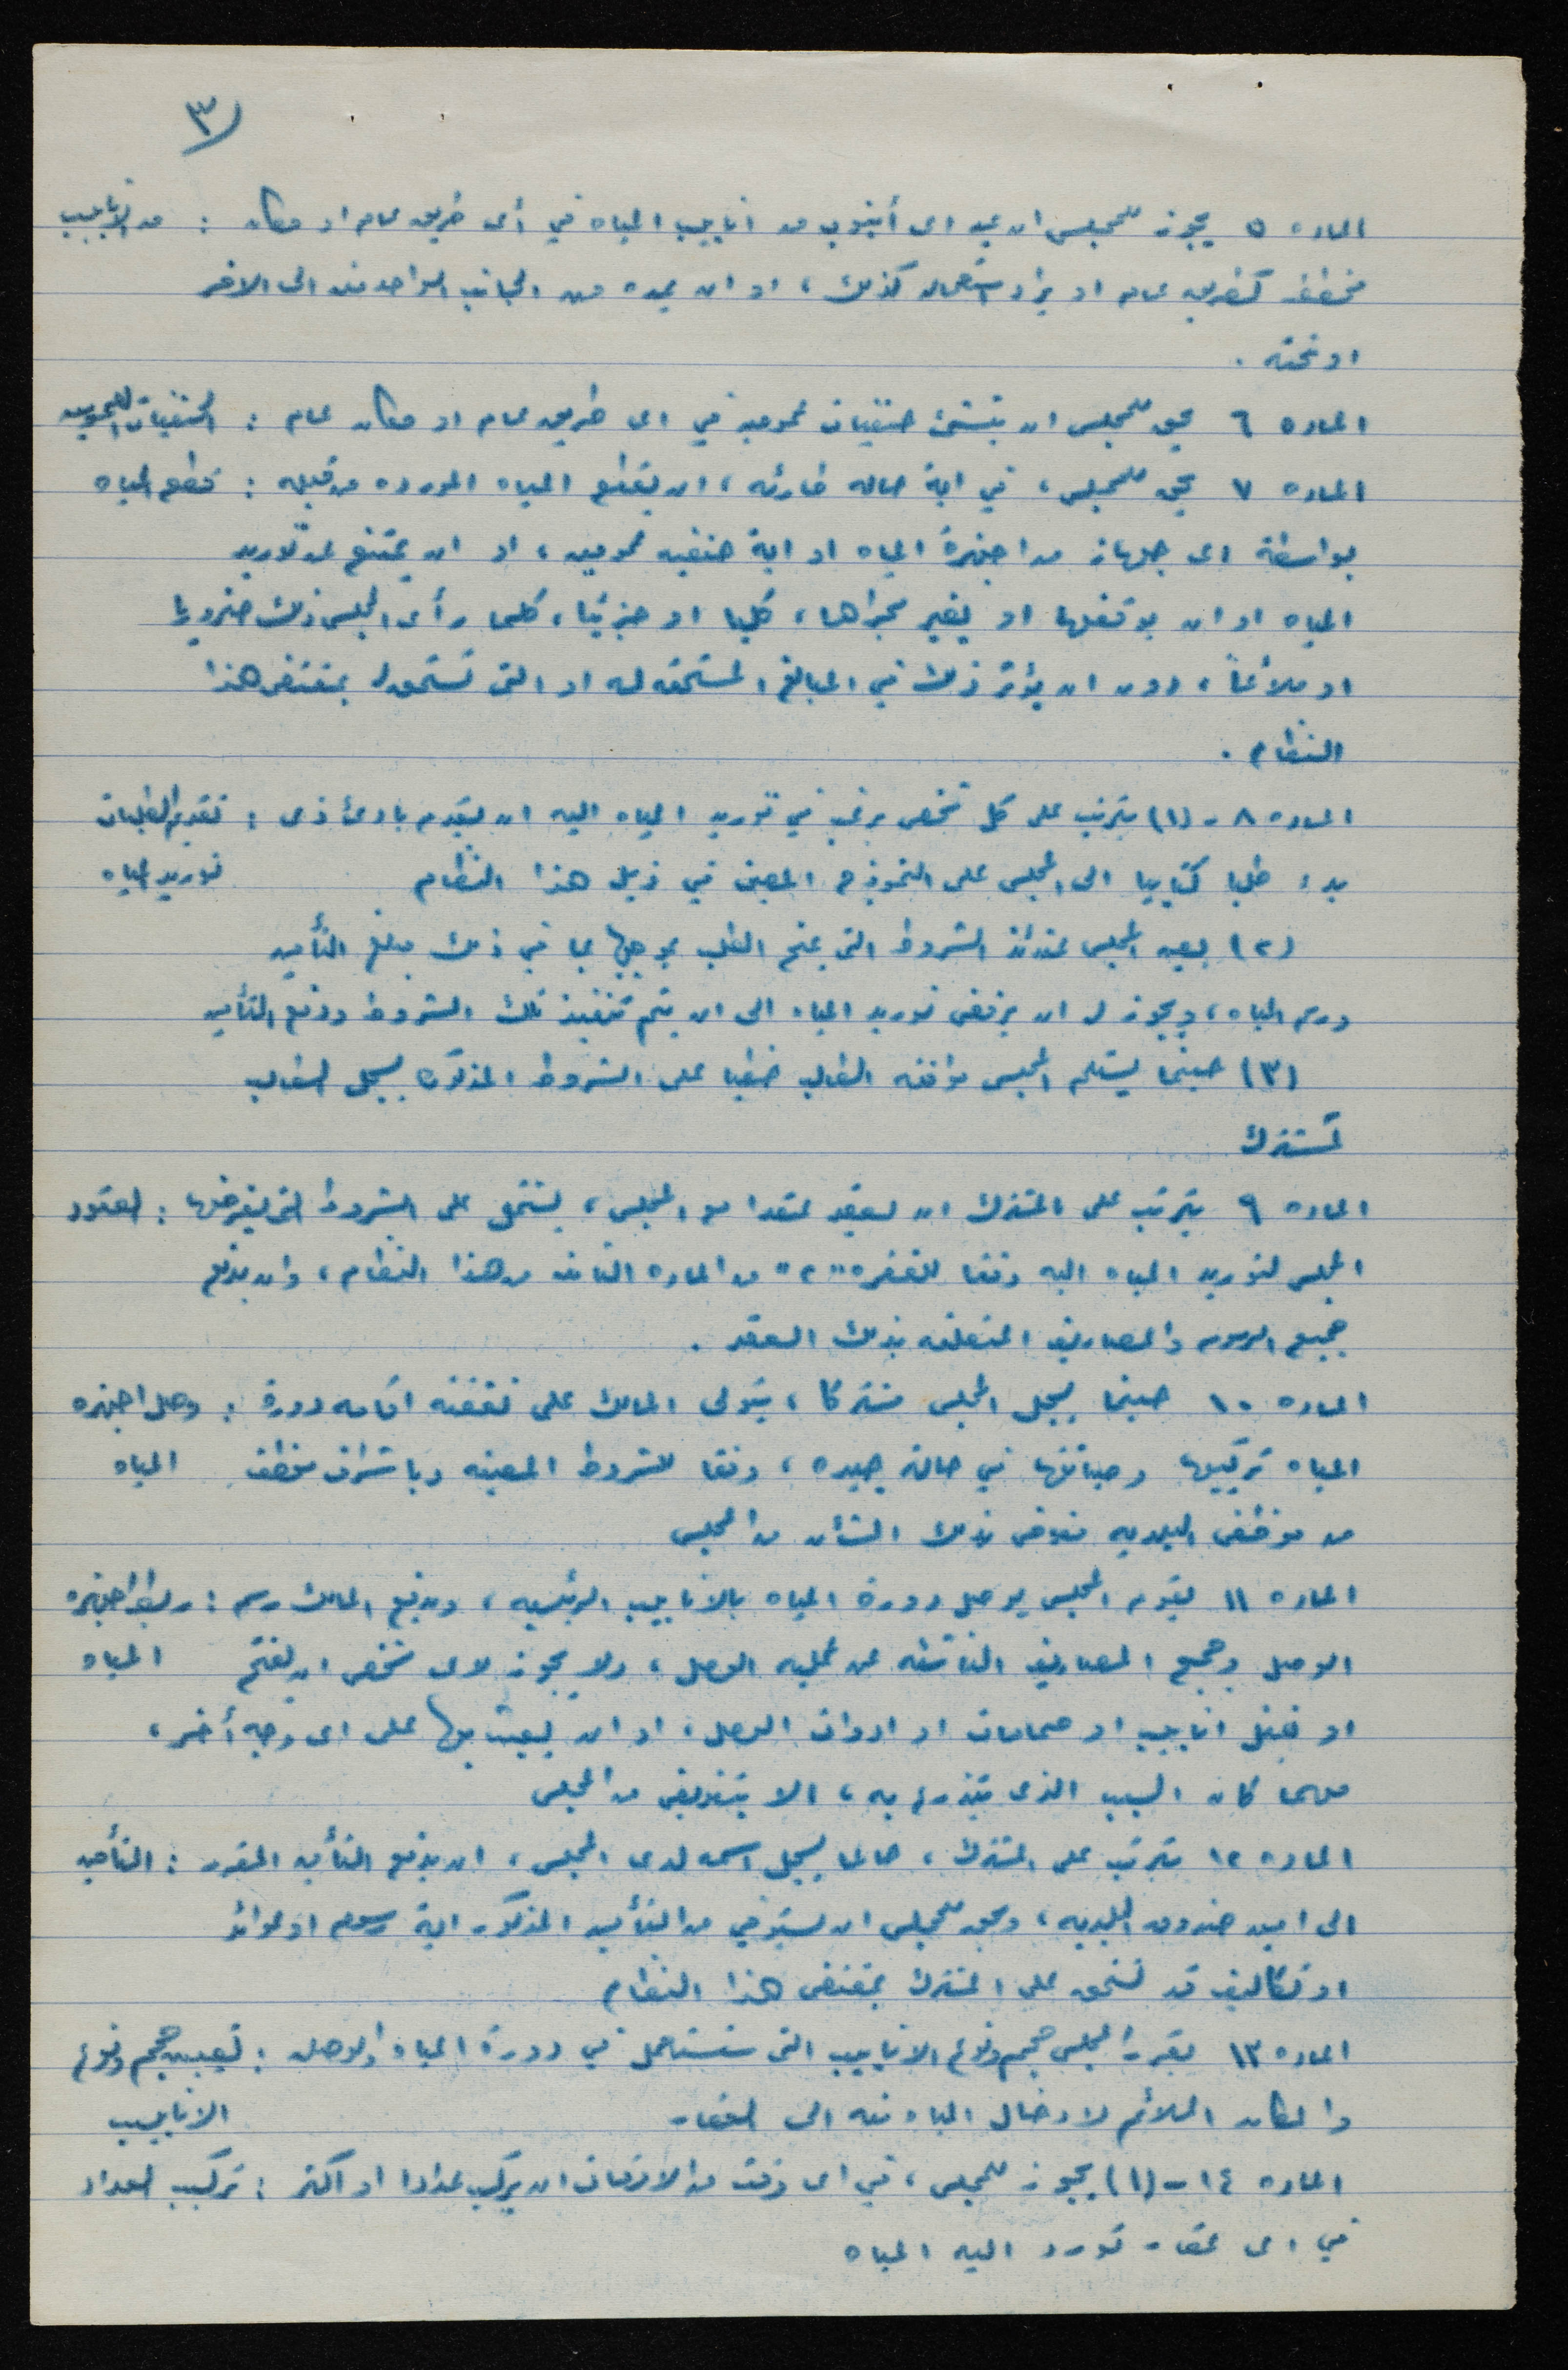 ٣
المادة ٥ يجوز للمجلس ان يمد اى أنبوب من انابيب المياه في أى طريق عام او مكان : مد الانابيب
مخطط كطريق عام او يراد استعماله كذلك ، او ان يمده من الجانب الواحد منه الى الاخر
او تحته .
الماده ٦ يحق للمجلس ان ينشئ حنفيات عموميه في اى طريق عام او مكان عام : الحنفيات العموميه
الماده ٧ يحق للمجلس ، في اية حاله طارئه ، ان يقطع المياه الموروده من قبله : قطع المياه
بواسطة اى جهاز من اجهزة المياه او اية حنفيه عموميه ، او ان يمتنع عن توريد
المياه او ان يوقفها او يغير مجراها ، كليا او جزئيا ، كلما رأى المجلس ذلك ضروريا
او ملائماً ، دون ان يؤثر ذلك في المبالغ المستحقه له او التى تستحق له بمقتضى هذا
النظام .
الماده ٨ - (١) يترتب على كل شخص يرغب في توريد المياه اليه ان يتقدم بادئ ذى : تقديم الطلبات
بدء طلبا كتابيا الى المجلس على النموذج المبين في ذيل هذا النظام توريد المياه
(٢) يعين المجلس عندئذ الشروط التى يمنح الطلب بموجبها بما في ذلك مبلغ التأمين
ورسم المياه ، ويجوز له ان يرفض توريد المياه الى ان يتم تنفيذ تلك الشروط ودفع التأمين
(٣) حينما يستلم المجلس موافقه الطالب خطيا على الشروط المذكوره يسجل الطالب
كمشترك
الماده ٩ يترتب على المشترك ان يعقد عقدا مع المجلس ، يشتمل على الشروط التى يفرضها : العقود
المجلس لتوريد المياه اليه وفقا للفقره "٢" من الماده الثامنه من هذا النظام ، وان يدفع
جميع الرسوم والمصاريف المتعلقه بذلك العقد .
الماده ١٠ حينما يسجل المجلس مشتركا ، يتولى المالك على نفقته اقامه دورة : وصل اجهزه
المياه تركيبها وصيانتها في حالة جيده ، وفقا للشروط المعينه وباشراف موظف المياه
من موظفى البلديه مفوض بذلك الشأن من المجلس
الماده ١١ يقوم المجلس بوصل دورة المياه بالانابيب الرئيسيه ، ويدفع المالك رسم : ربط اجهزه
الوصل وجميع المصاريف الناشئه عن عمليه الوصل ، ولا يجوز لاى شخص ان يفتح المياه
او يقفل انابيب او صمامات او ادوات الوصل ، او ان يعبث بها على اى وجه أخر ،
مهما كان السبب الذى يتذرع به ، الا بتفويض من المجلس
الماده ١٢ يترتب على المشترك ، حالما يسجل اسمه لدى المجلس ، ان يدفع التأمين المقرر : التأمين
الى امين صندوق البلديه ، ويحق للمجلس ان يستوفي من التأمين المذكور اية رسوم او عوائد
او تكاليف قد تستحق على المشترك بمقتضى هذا النظام
الماده ١٣ يقرر المجلس حجم ونوع الانابيب التى ستستعمل في دورة المياه والوصله : تعيين حجم ونوع
والمكان الملائم لادخال المياه منه الى العقار الانابيب
الماده ١٤ - (١) يجوز للمجلس ، في اى وقت من الاوقات ان يركب عدادا او اكثر : تركيب العداد
في اى عقار تورد اليه المياه